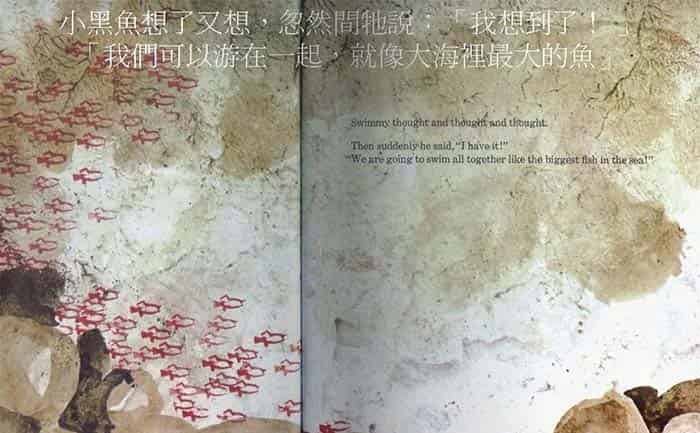 小黑魚想了又想，忽然間牠說：「我想到了！」
「我們可以游在一起，就像大海裡最大的魚」
Swimmy thought and thought and thought.
Then suddenly he said, “I have it!”
“We are going to swim all together like the biggest fish in the sea!”